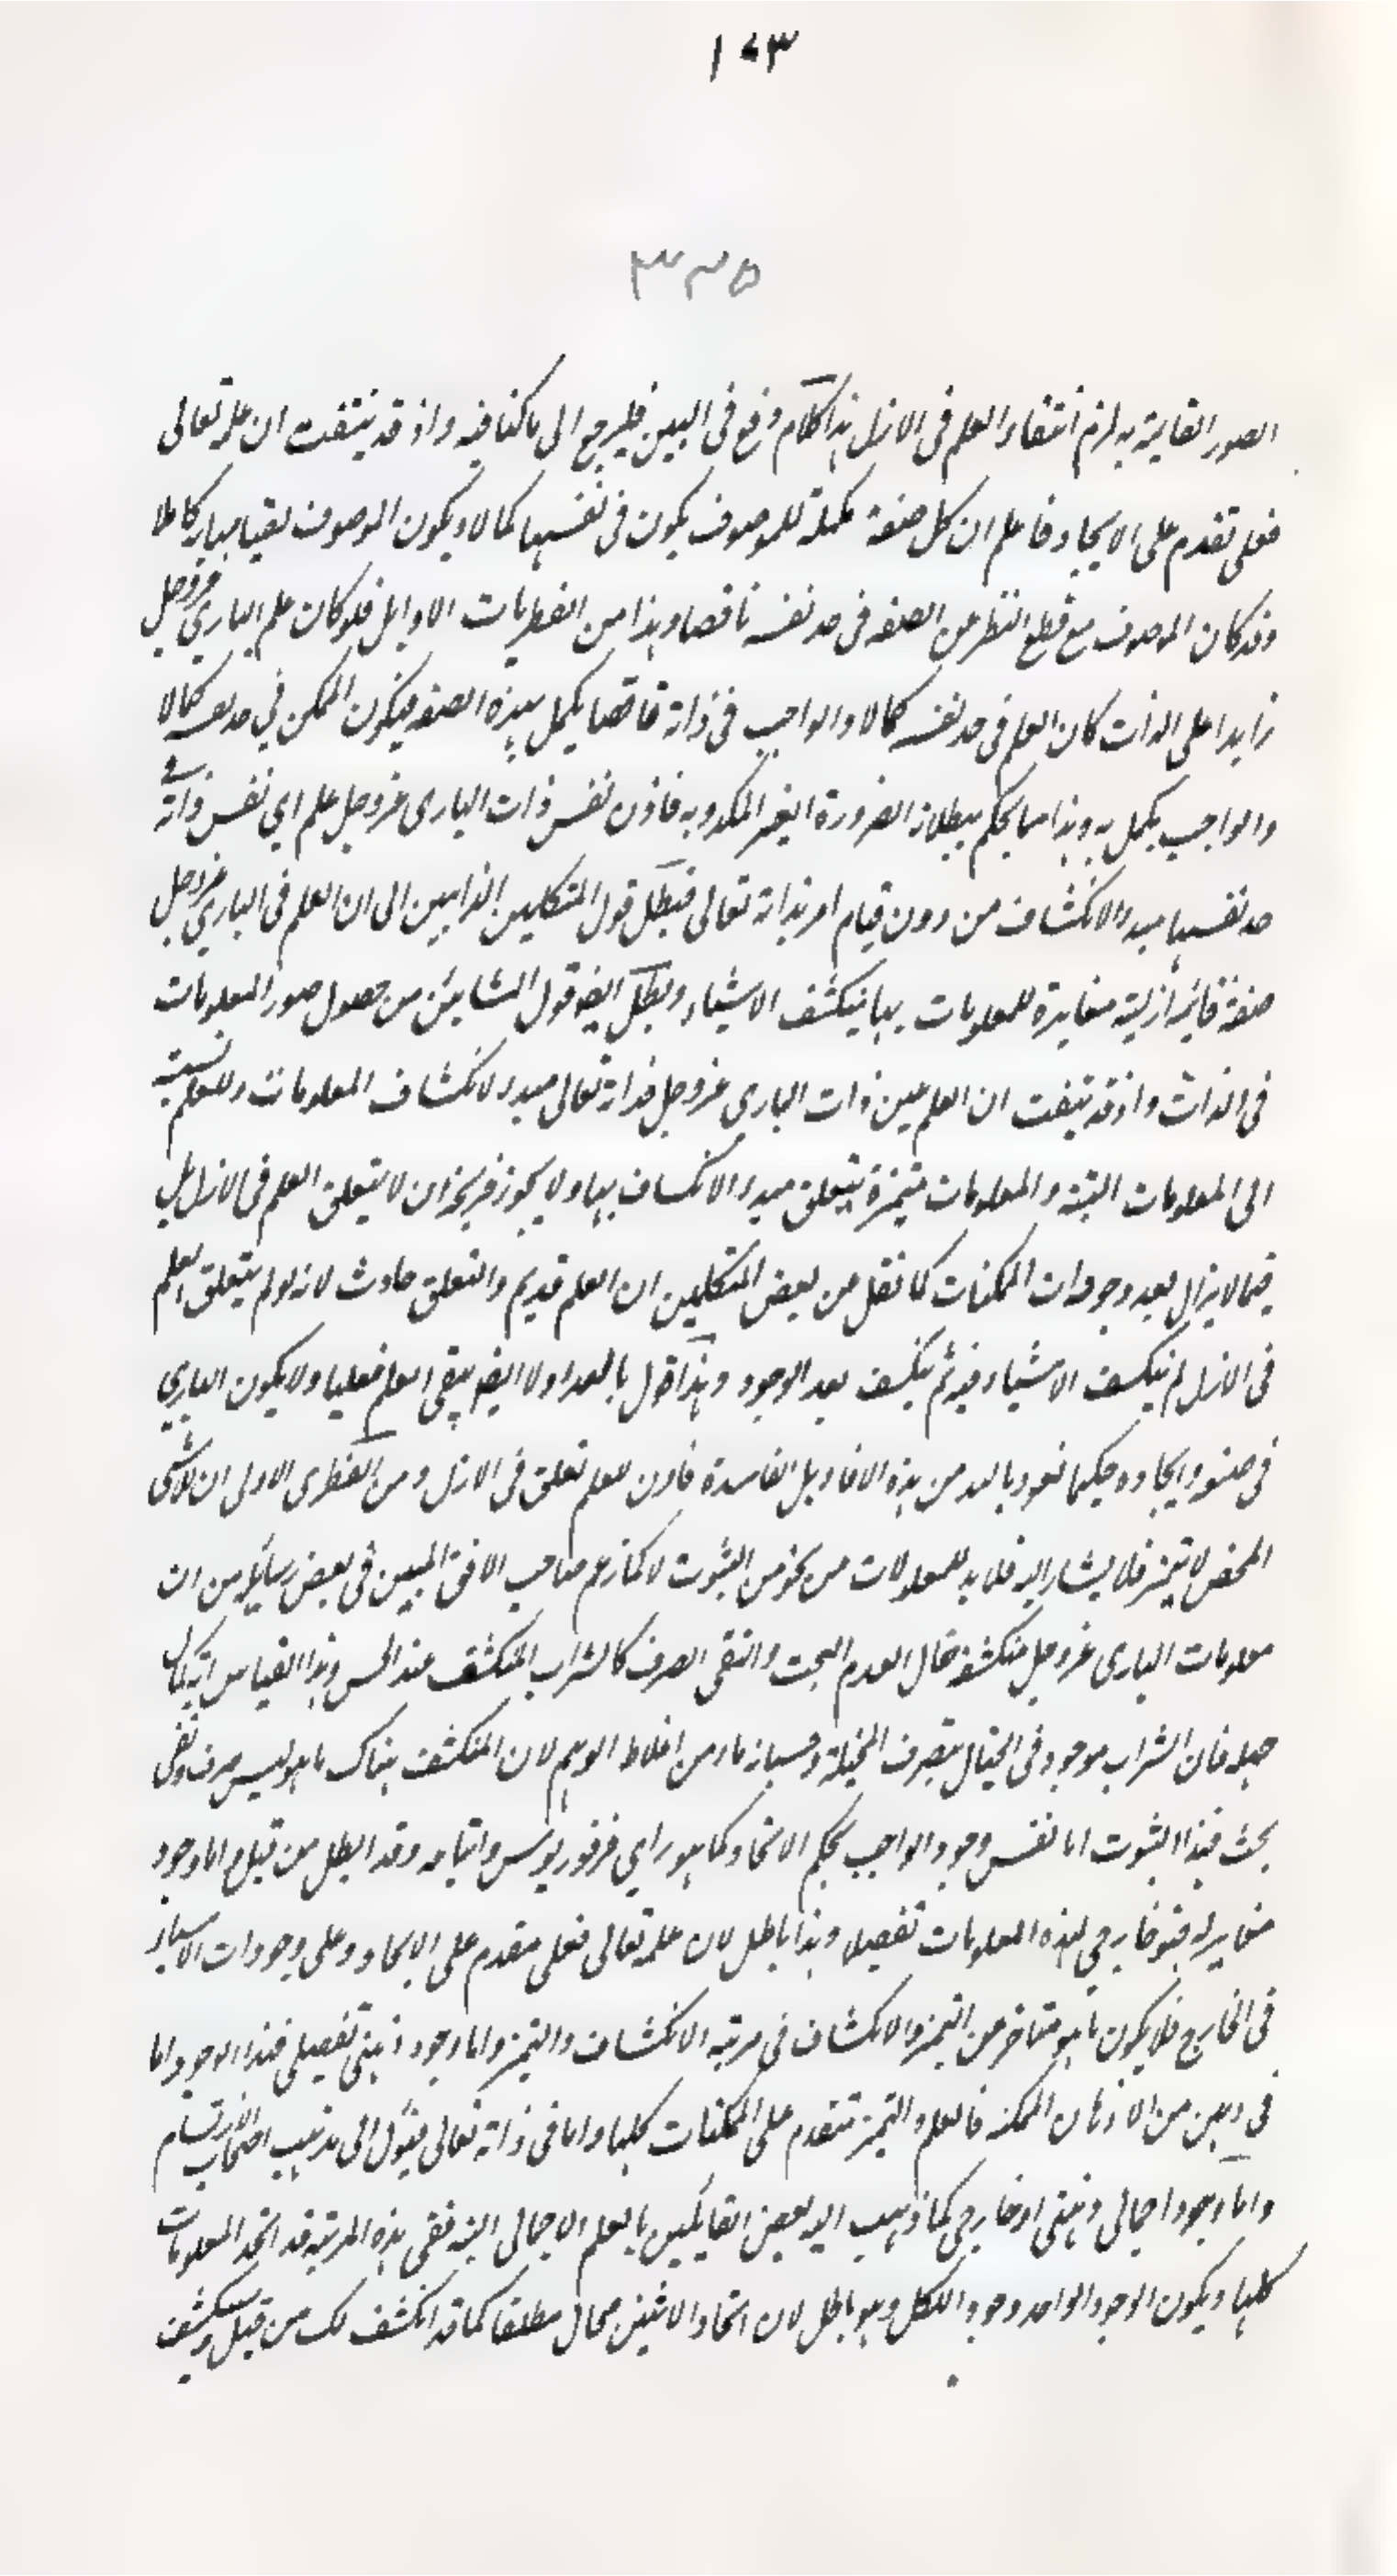 ١٠٣
٣٢٥
الصور القايمة به لزم انتفاء العلم فى الازل هذا كلام وقع فى البين فليرجع الى ما كنا فيه واذ قد تيقنت ان علمه تعالى
فعلى تقدم على الايجاد فاعلم ان كل صفة مكملة للموصوف يكون فى نفسها كمالا ويكون الموصوف بقيامها به كاملا
وقد كان الموصوف مع قطع النظر عن الصفه فى حد نفسه ناقصا وهذا من الفطريات الاوايل فلو كان علم البارى عزوجل
زايدا على الذات كان العلم فى حد نفسه كمالا والواجب فى ذاته ناقصا يكمل بهذه الصفه فيكون الممكن فى حد نفسه كمالا
والواجب يكمل به وهذا مما يحكم ببطلانه الضرورة الغير المكذوبه فاذن نفس ذات البارى عزوجل علم اي نفس ذاته فى
حد نفسها مبدء الانكشاف من دون قيام امر بذاته تعالى فبطل قول المتكلمين الذاهبين الى ان العلم فى البارى عزوجل
صفة قايمة أزلية مغايرة للمعلومات بها ينكشف الاشياء وبطل ايضا قول المشائين من حصول صور المعلومات
فى الذات واذ قد تيقنت ان العلم عين ذات البارى عزوجل فذاته تعالى مبدء لانكشاف المعلومات وللعلم نسبة
الى المعلومات البتة والمعلومات متميزة يتعلق مبدء الانكشاف بها ولا يجوز ان لا يتعلق العلم فى الازل بل
فيما لا يزال بعد وجودات الممكنات كما نقل عن بعض المتكلمين ان العلم قديم والتعلق حادث لانه لو لم يتعلق العلم
فى الازل لم ينكشف الاشياء فيه ثم ينكشف بعد الوجود وهذا قول بالبداء ولا ايضا يبقى العلم فعليا ولا يكون البارى
فى صنعه وايجاده حكيما نعوذ بالله من هذه الاقاويل الفاسدة فاذن للعلم تعلق فى الازل ومن الفطرى الاولى ان اللاشى
المحض لا يتميز فلا يشار اليه فلابد للمعلولات من نحو من الثبوت لا كما زعم صاحب الافق المبين فى بعض رسائله من ان
معلومات البارى عزوجل منكشفة حال العدم البحت والنفى الصرف كالسراب المنكشف عند الحس وهذا القياس
فان السراب موجود فى الخيال بتصرف المخيلة وحسبانه ماء من اغلاط الوهم لان المنكشف هناك ما هو ليس صرف ونفى
بحث فهذا الثبوت اما نفس وجود الواجب بحكم الاتحاد كما هو راي فرفوريوس واتباعه وقد ابطل من قبل واما وجود
مغاير له فهو خارجى لهذه المعلومات تفصيلا وهذا باطل لان علمه تعالى فعلى مقدم على الايجاد وعلى وجودات الاشياء
فى الخارج فلا يكون ما هو متاخر عن التميز والانكشاف فى مرتبه الانكشاف والتميز واما وجود ذهنى تفصيلى فهذا الوجود اما
فى ذهن من الاذهان الممكنه فالعلم والتميز متقدم على الممكنات كلها واما فى ذاته تعالى فيئول الى مذهب اصحاب الارتسام
واما وجود اجمالى ذهنى او خارجى كما ذهب اليه بعض القايلين بالعلم الاجمالى البتة ففى هذه المرتبة قد اتحد المعلومات
كلها ويكون الوجود الواحد وجود الكل وهو باطل لان اتحاد الاثنين محال مطلقا كما قد انكشف لك من قبل وسينكشف